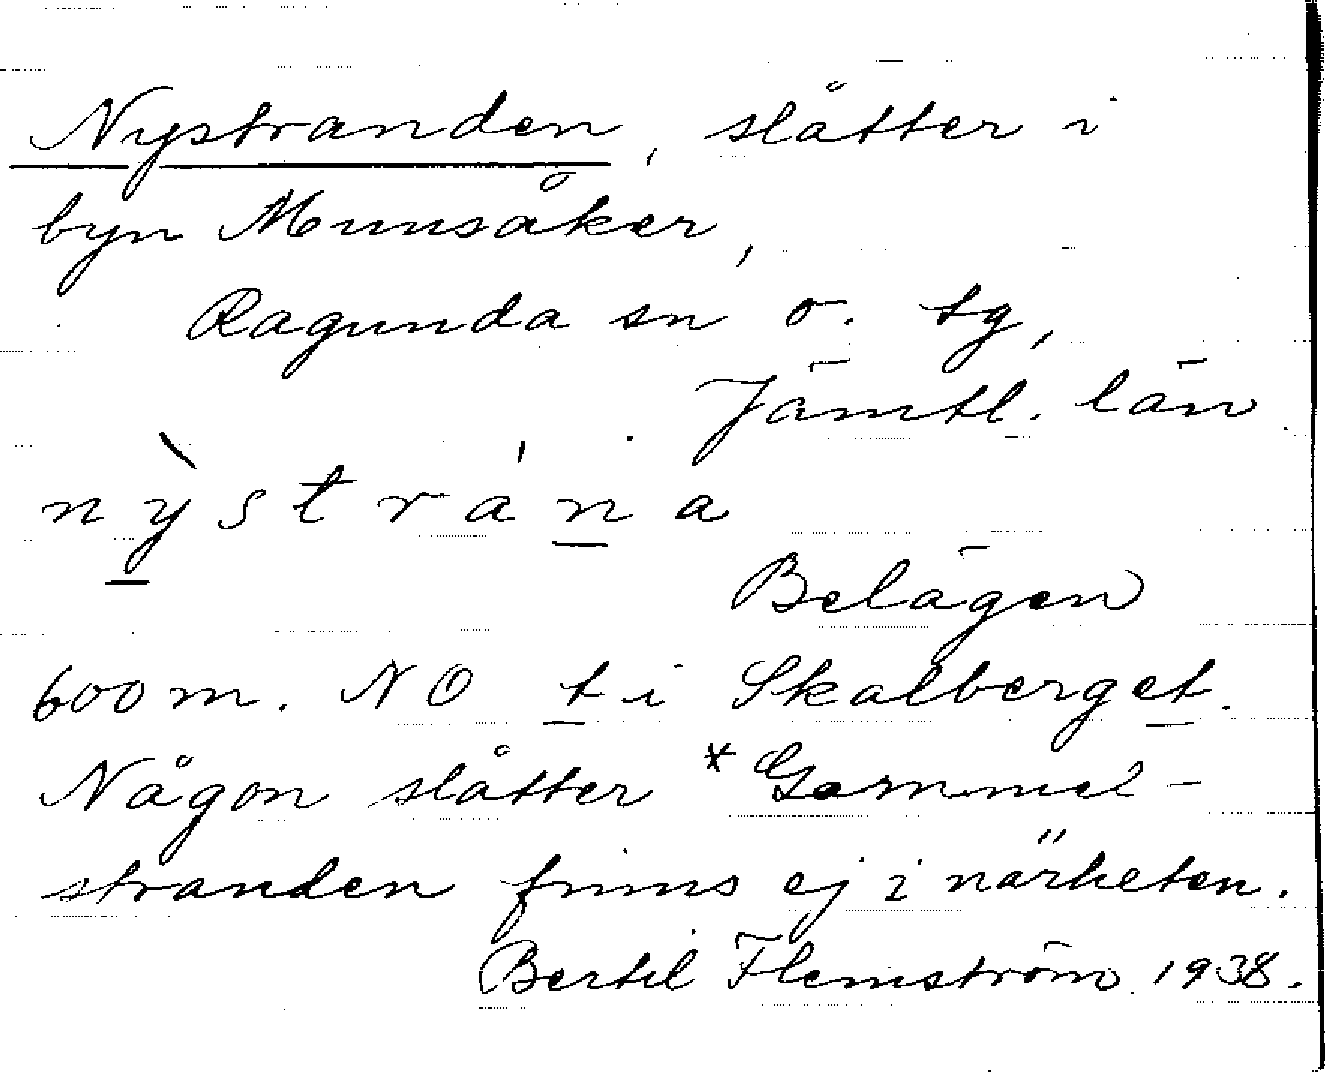 Nystranden, slåtter i
byn Munsåker,
Ragunda sn o. tg,
Jämtl. län
nỳstrána
Belägen
600 m. NO t i Skalberget.
Någon slåtter *Gammel-
stranden finns ej i närheten.
Bertil Flemström 1938.